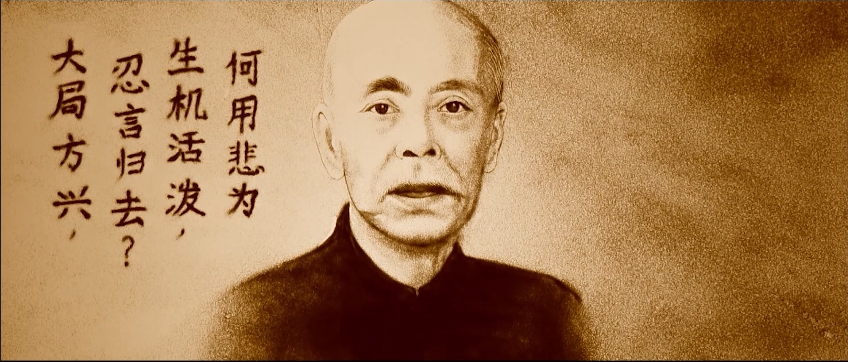 大局方兴，
忍言归去？
生机活泼，
何用悲为